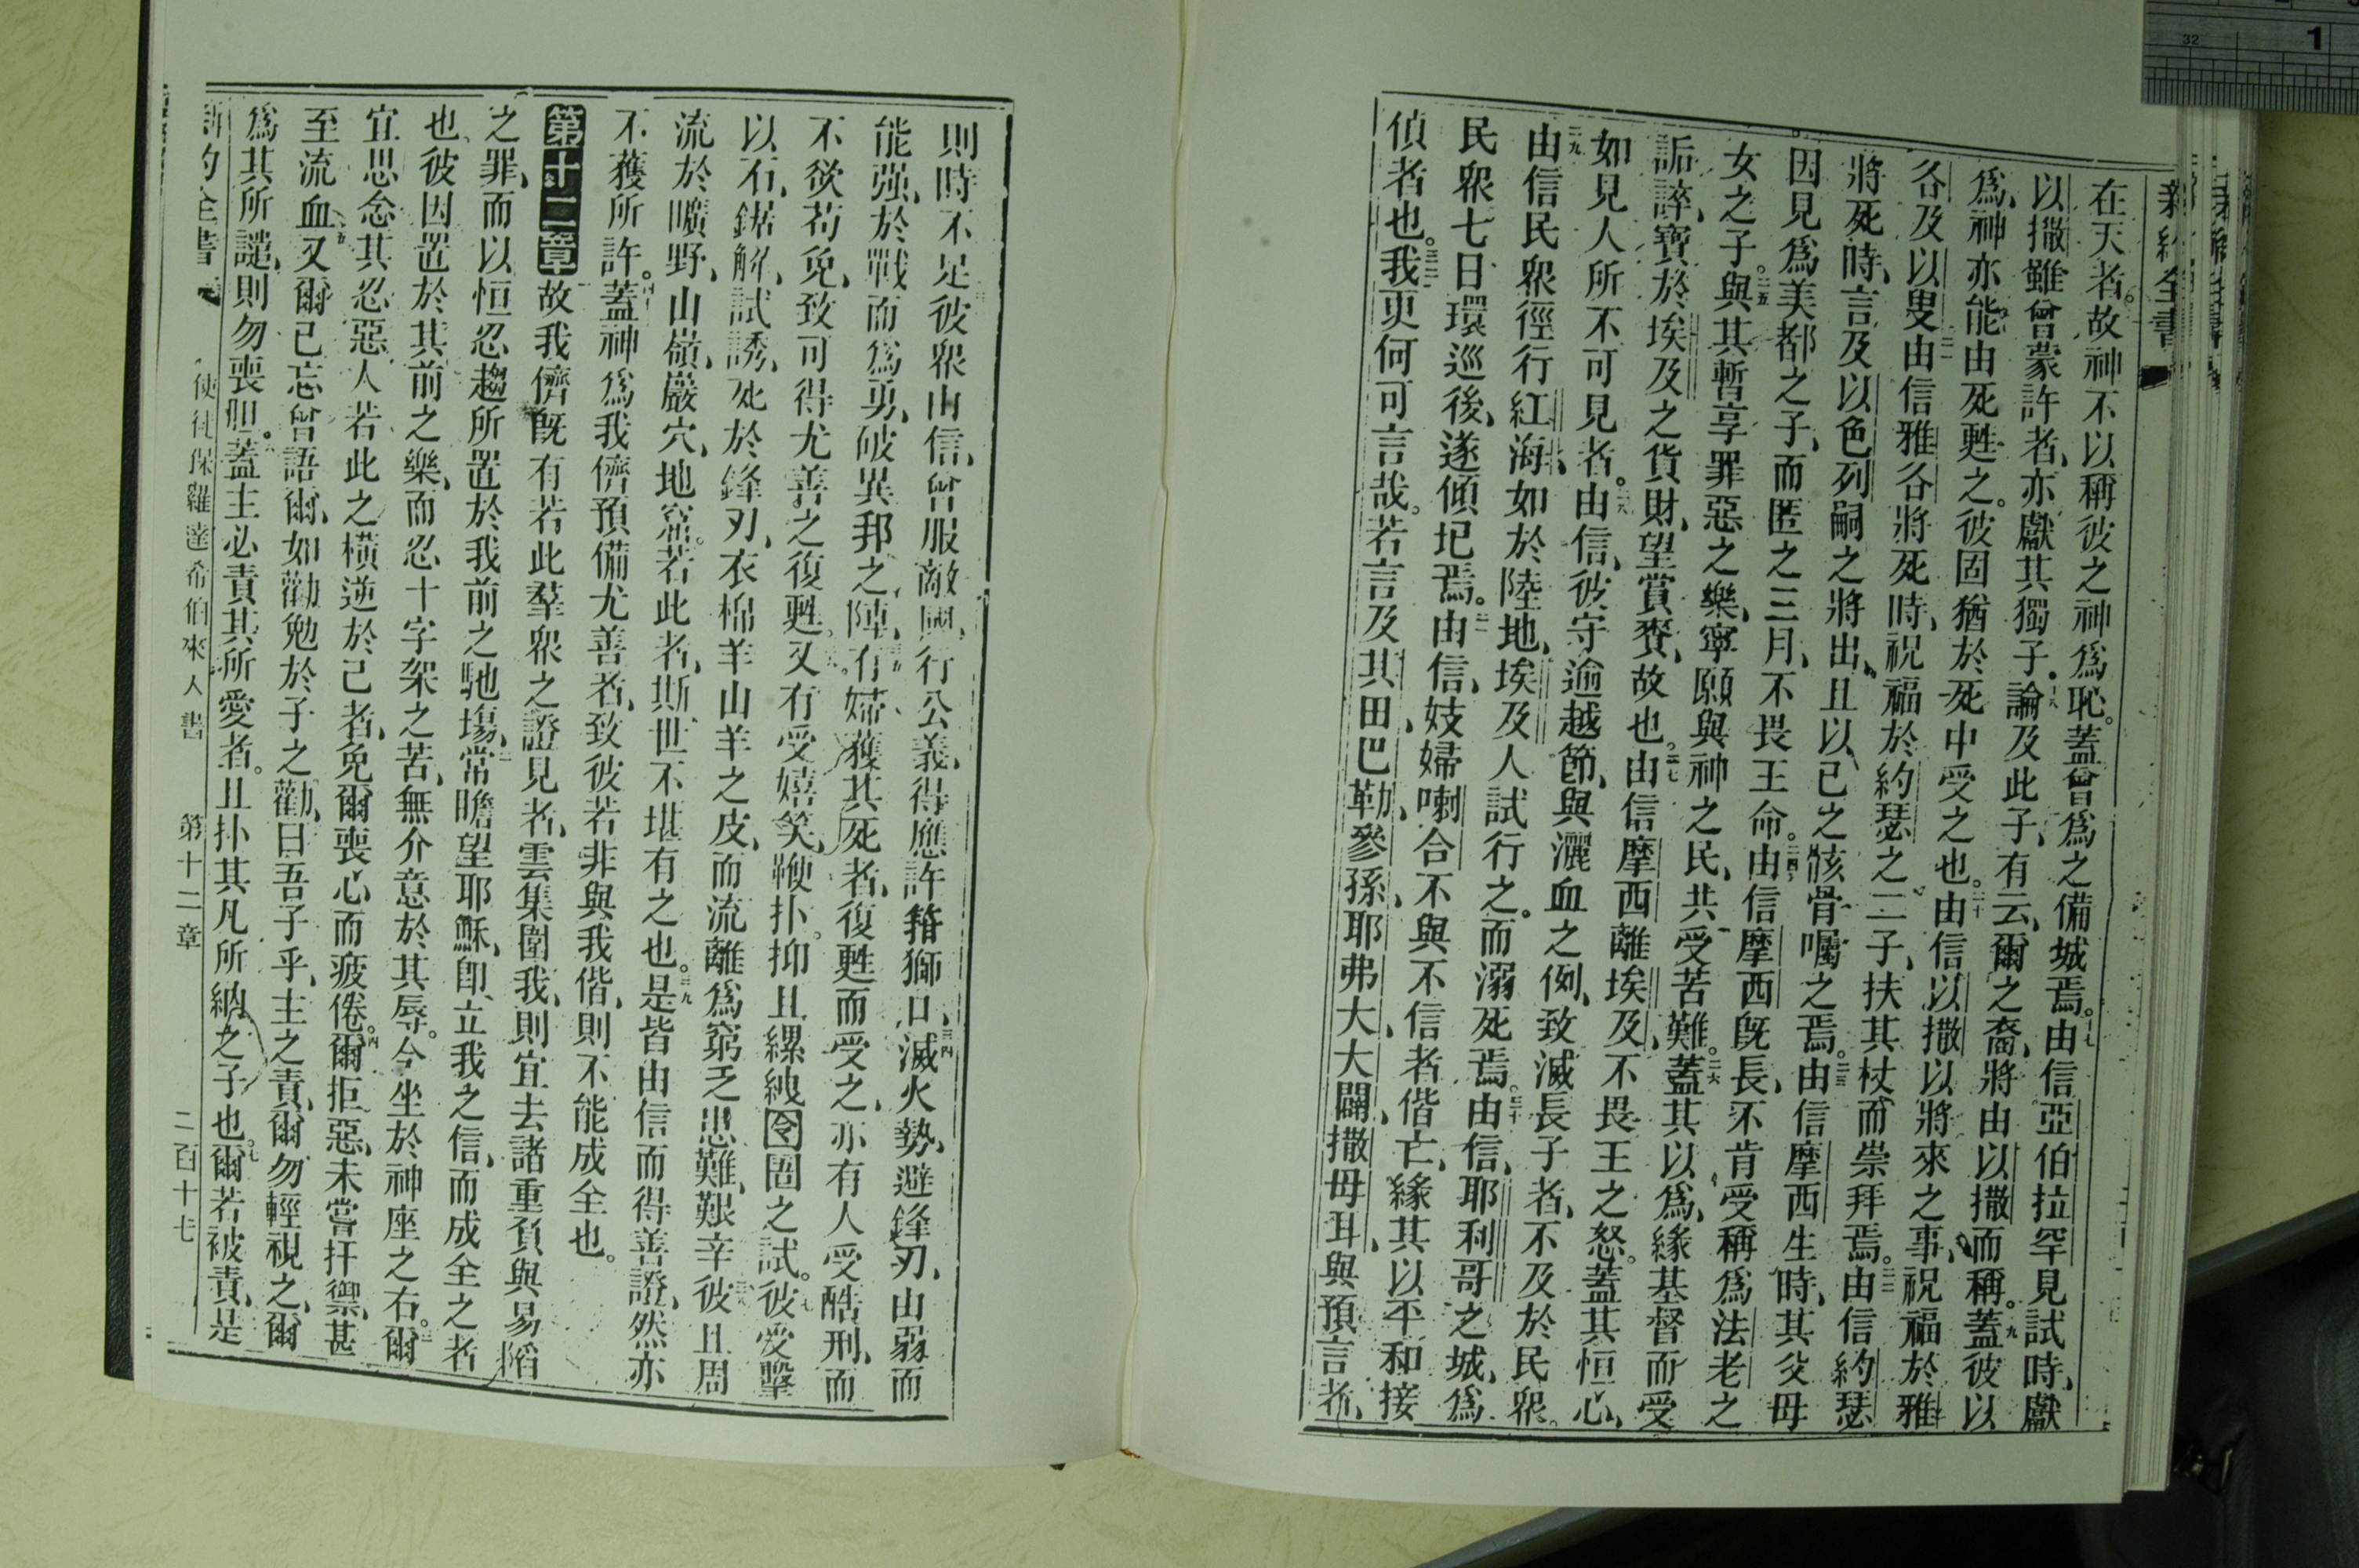 新約全書
在天者。故神不以稱彼之神爲恥。蓋曾爲之備城焉。十七由信亞伯拉罕見試時、獻
以撒雖曾蒙許者、亦獻其獨子。十八論及此子、有云、爾之裔、將由以撒而稱。十九蓋彼以
爲、神亦能由死甦之。彼固猶於死中受之也。二十由信以撒以將來之事、祝福於雅
各及以叟二一由信雅各將死時、祝福於約瑟之二子、扶其杖而崇拜焉。二二由信約瑟
將死時、言及以色列嗣之將出、且以己之骸骨囑之焉。二三由信摩西生時、其父母
因見爲美都之子、而匿之三月、不畏王命。二四由信摩西旣長、不肯受稱爲法老之
女之子。二五與其暫享罪惡之樂、寧願與神之民、共受苦難。二六蓋其以爲、緣基督而受
詬誶、寶於埃及之貨財、望賞賚、故也。二七由信摩西離埃及、不畏王之怒。蓋其恒心、
如見人所不可見者。二八由信、彼守逾越節、與灑血之例、致滅長子者、不及於民衆。
二九由信民衆徑行紅海、如於陸地、埃及人試行之。而溺死焉。三十由信、耶利哥之城、爲
民衆七日環巡後、遂傾圮焉。三一由信、妓婦喇合不與不信者偕亡、緣其以平和接
偵者也。三二我更何可言哉。若言及其田、巴勒、參孫、耶弗大、大闢、撒母耳、與預言者、
則時不足彼衆由信、曾服敵國、行公義、得應許、箝獅口、三四滅火勢、避鋒刃、由弱而
能强、於戰而爲勇、破異邦之陣、三五有婦獲其死者、復甦而受之、亦有人受酷刑、而
不欲苟免、致可得尤善之復甦。三六又有受嬉笑、鞭扑。抑且縲絏囹圄之試。三七彼受擊
以石、鋸解、試誘、死於鋒刃、衣棉羊山羊之皮、而流離爲窮乏患難、艱辛三八彼且周
流於曠野、山嶺、巖穴、地窟。若此者、斯世不堪有之也。三九是皆由信而得善證、然亦
不獲所許。四十蓋神爲我儕預備尤善者、致彼若非與我偕、則不能成全也。
第十二章故我儕旣有若此羣衆之證見者、雲集圍我、則宜去諸重負與易陷
之罪、而以恒忍趨所置於我前之馳塲、二常瞻望耶穌、卽立我之信、而成全之者
也、彼因置於其前之樂、而忍十字架之苦、無介意於其辱。今坐於神座之右。三爾
宜思念其忍惡人若此之橫逆於己者、免爾喪心而疲倦。四爾拒惡、未嘗扞禦、甚
至流血、五又爾已忘曾語爾、如勸勉於子之勸、曰吾子乎、主之責、爾勿輕視之、爾
爲其所譴、則勿喪胆。六蓋主必責其所愛者。且扑其凡所納之子也。七爾若被責、是
新約全書 使徒保羅達希伯來人書 第十二章 二百十七